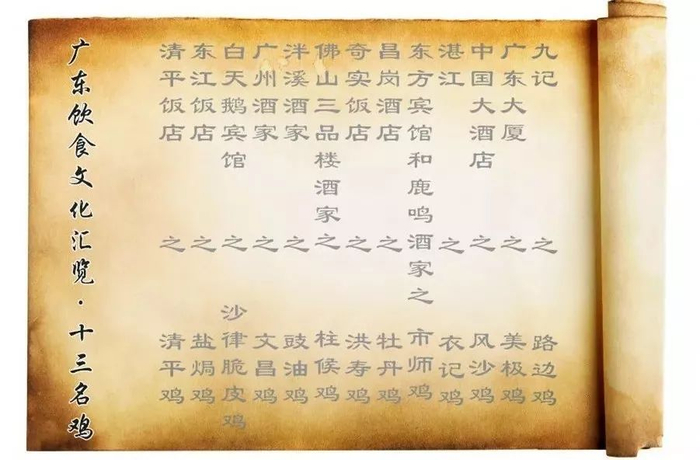 广东饮食文化汇览·十三名鸡
清平饭店之清平鸡
东江饭店之盐焗鸡
白天鹅宾馆之沙律脆皮鸡
广州酒家之文昌鸡
泮溪酒家之豉油鸡
佛山三品楼酒家之柱候鸡
奇实饭店之洪寿鸡
昌岗酒店之牡丹鸡
东方宾馆和鹿鸣酒家之市师鸡
湛江之衣记鸡
中国大酒店之风沙鸡
广东大厦之美极鸡
九记之路边鸡